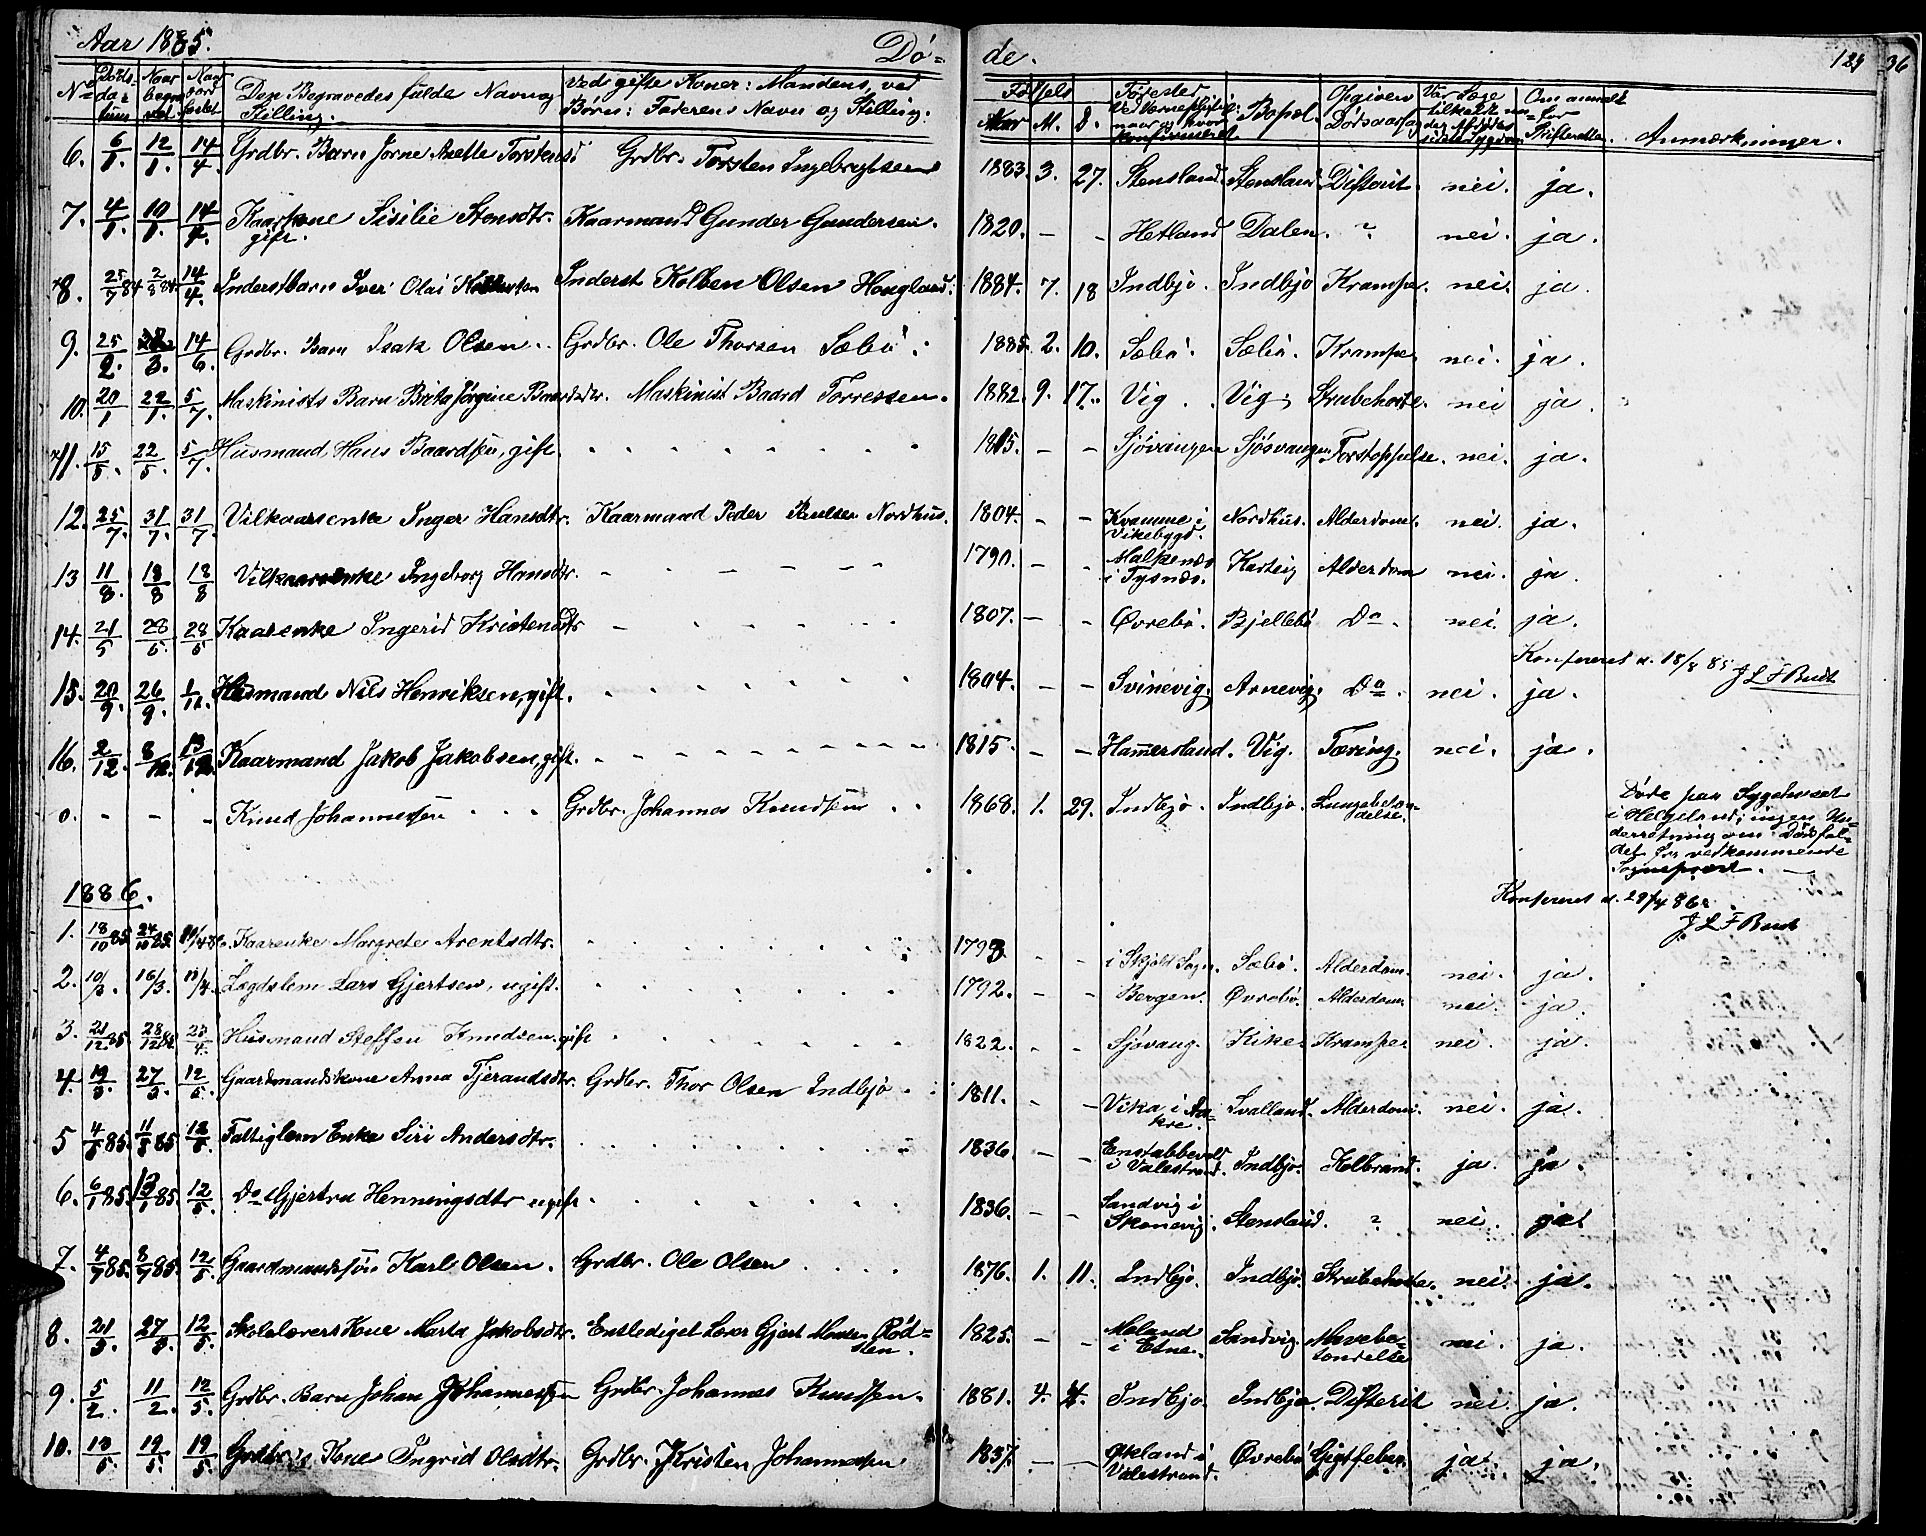 Aar 1885. Dö- de. 129 36
No Döds-datum Naar begravet Naar jordfæstet Den Begravedes fulde Navn og Stilling. Ved gifte Koner: Mandens, ved Börn: Faderens Navn og Stilling. Födsels Aar M. D. Födested Bopæl. Opgiven Dödsaarsag Om anmeldt for Skifteretten. Anmærkninger.
6. 6/1. 12/1. 14/4. Grdbr. Barn Jorne Axelle Torstensd Grdbr. Torsten Ingebrigtsen 1883. 3. 27. Stensland. Stensland Difterit. nei. ja.
7. 4/1. 10/1. 14/4. Kaarkone Sisilie Stensdtr. gift. Kaarmand Gunder Gundersen. 1820. - - Hetland Dalen. ? nei. ja.
8. 25/7 84 2/8 84. 14/4. Inderstbarn Iver Olai Inderst Kolben Olsen Hougland. 1884. 7. 18 Indbjo. Indbjo Krampe. nei. ja.
9. 25/2. 3. 14/6. Grdbr. Barn Isak Olsen.. Grdbr. Ole Thorsen Sæbö. 1885. 2. 10. Sæbö. Sæbö. Krampe. nei. ja.
10. 20/1 22/1. 5/7. Maskinists Barn Brita Jörgine Baardsdtr. Maskinist Baard Torressen. 1882. 9. 17. Vig. Vig. Strubehoste. nei ja.
11. 15/5. 22/5. 5/7. Husmand Hans Baardsen, gift. 1815. - - Sjövangen Sjövangen Forstoppelse. nei. ja.
12. 25/7. 31/7. 31/7. Vilkaarsenke Inger Hansdtr. Kaarmand Peder Nordhus. 1804. - - Kvamme i Vikebygd. Nordhus. Alderdom. nei. ja.
13 11/8. 18/8 18/8 Vilkaarsenke Ingeborg Hansdtr. 1790. - - Malkenes i Tysnes. Alderdom nei. ja.
14. 21/5 28/5. 28/5 Kaarenke Ingerid Kristensdtr 1807. - - Øvrebö. Bjellebö Do. nei. ja.
Konfereret d. 18/8 85 J L F Budt
15. 20/9. 26/9. 1/11. Husmand Nils Henriksen, gift. 1804. - - Svinevig. Arnevig. Do. nei. ja.
16. 2/12. 8/12. 13/12. Kaarmand Jakob Jakobsen, gift. 1815. - - Hamersland. Vig. Tæring. nei. ja.
0. - - - Knud Johannessen Grdbr. Johannes Knudsen 1868. 1. 29. Indbjo. Indbjo. Lungebetændelse. Döde paa Sygehuset i Helgeland; ingen Underretning om Dödsfaldet fra vedkommende Sognepræst.
1886.
Konfereret d. 29/4 86. J L F Budt
1. 18/10 85 24/10 85. Kaarenke Margrete Arentsdtr. 1793. - - i Skjold Sogn. Sæbö. Alderdom. nei. ja.
2. 10/3. 16/3. Lægdslem Lars Gjertsen, ugift. 1792. - - Bergen. Øvrebö. Alderdom. nei. ja.
3. 21/12 85 28/12 85 27/4. Husmand Steffen Knudsen. gift 1822. - - Sjövang. Kike. Krampe nei. ja.
4. 19/3. 27/3. 12/5 Gaardmandskone Anna Tjerandsdtr. Grdbr. Thor Olsen Indbjo. 1811. - - Vika i Svalland. Alderdom. nei. ja.
5 4/8 85. 11/8 85 12/5. Fattiglem Enke Siri Andersdtr. 1836. - - i Valestrand. Indbjo. Kolbrand. ja. ja.
6. 6/1 85. 13/1 85. 12/5. Do Gjertru Henningsdtr ugift 1836. - - Sandvig i Skonevig. Stensland. ? nei. ja.
7. 4/7 85. 8/7 85. 12/5. Gaardmandssön Karl Olsen. Grdbr. Ole Olsen 1876. 1. 11. Indbjo. Indbjo. Strubehoste. nei. ja.
8. 21/3. 27/3. 12/5. Skolelærers Kone Marta Jakobsdtr. Entlediget Lærer Gjert Monsen Rödsten. 1825. - - Meland i Etne. Sandvig. Mavebetændelse nei. ja.
9. 5/2. 11/2. 12/5. Grdbr. Barn Johan Johannessen Grdbr. Johannes Knudsen. 1881. 4. 4. Indbjo. Indbjo Difterit nei ja.
10. 13/5. 19/5. 19/5. Grdbr's Kone Ingrid Olsdtr. Grdbr. Kristen Johannessen 1837. - - Økland i Valestrand. Øvrebö Gigtfeber. ja. ja.